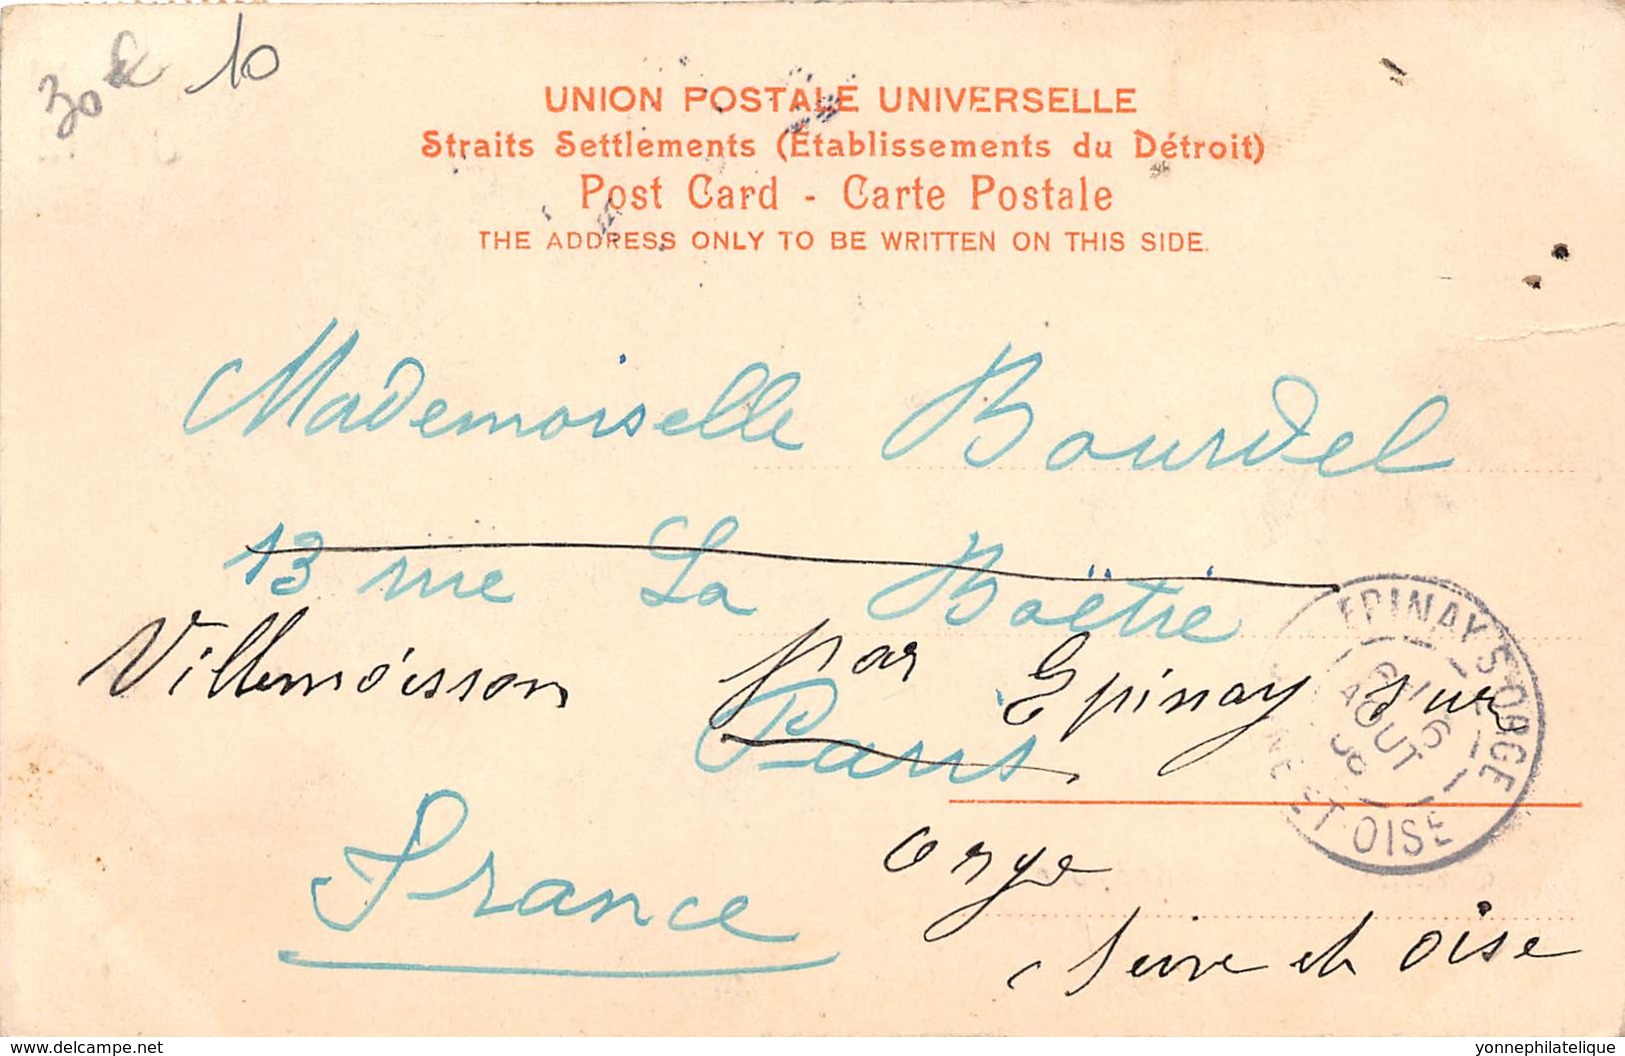 30 € 10
UNION POSTALE UNIVERSELLE
Straits Settlements (Établissements du Détroit)
Post Card - Carte Postale
THE ADDRESS ONLY TO BE WRITTEN ON THIS SIDE.
Mademoiselle Bourdel
13 rue La Boëtie
Villemoisson par Epinay sur
Paris
orge
France
Seine et oise
EPINAY S-ORGE
6
AOUT
ET-OISE
www.delcampe.net
yonnephilatelique